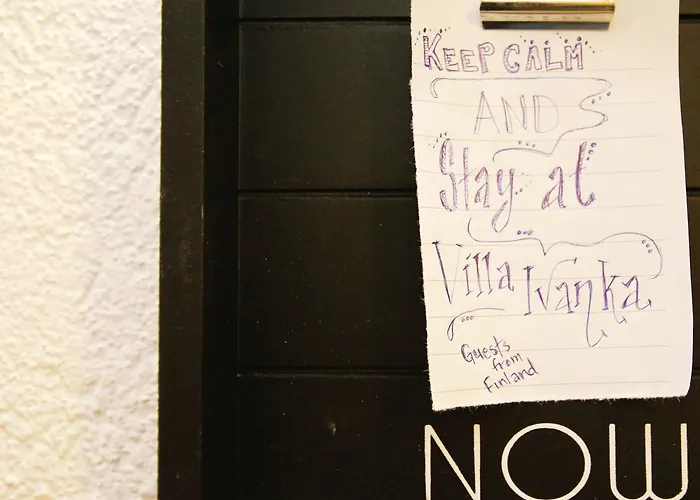 KEEP CALM
AND
Stay at
Villa Ivanka
Guests
from
Finland
NOW